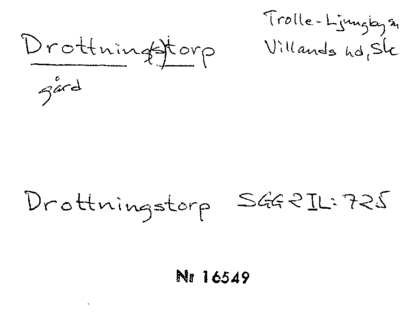 Drottning(s)torp
Trolle-Ljungby sn
Villands hd, Sk
gård
Drottningstorp SGG2IL: 725
Nr 16549